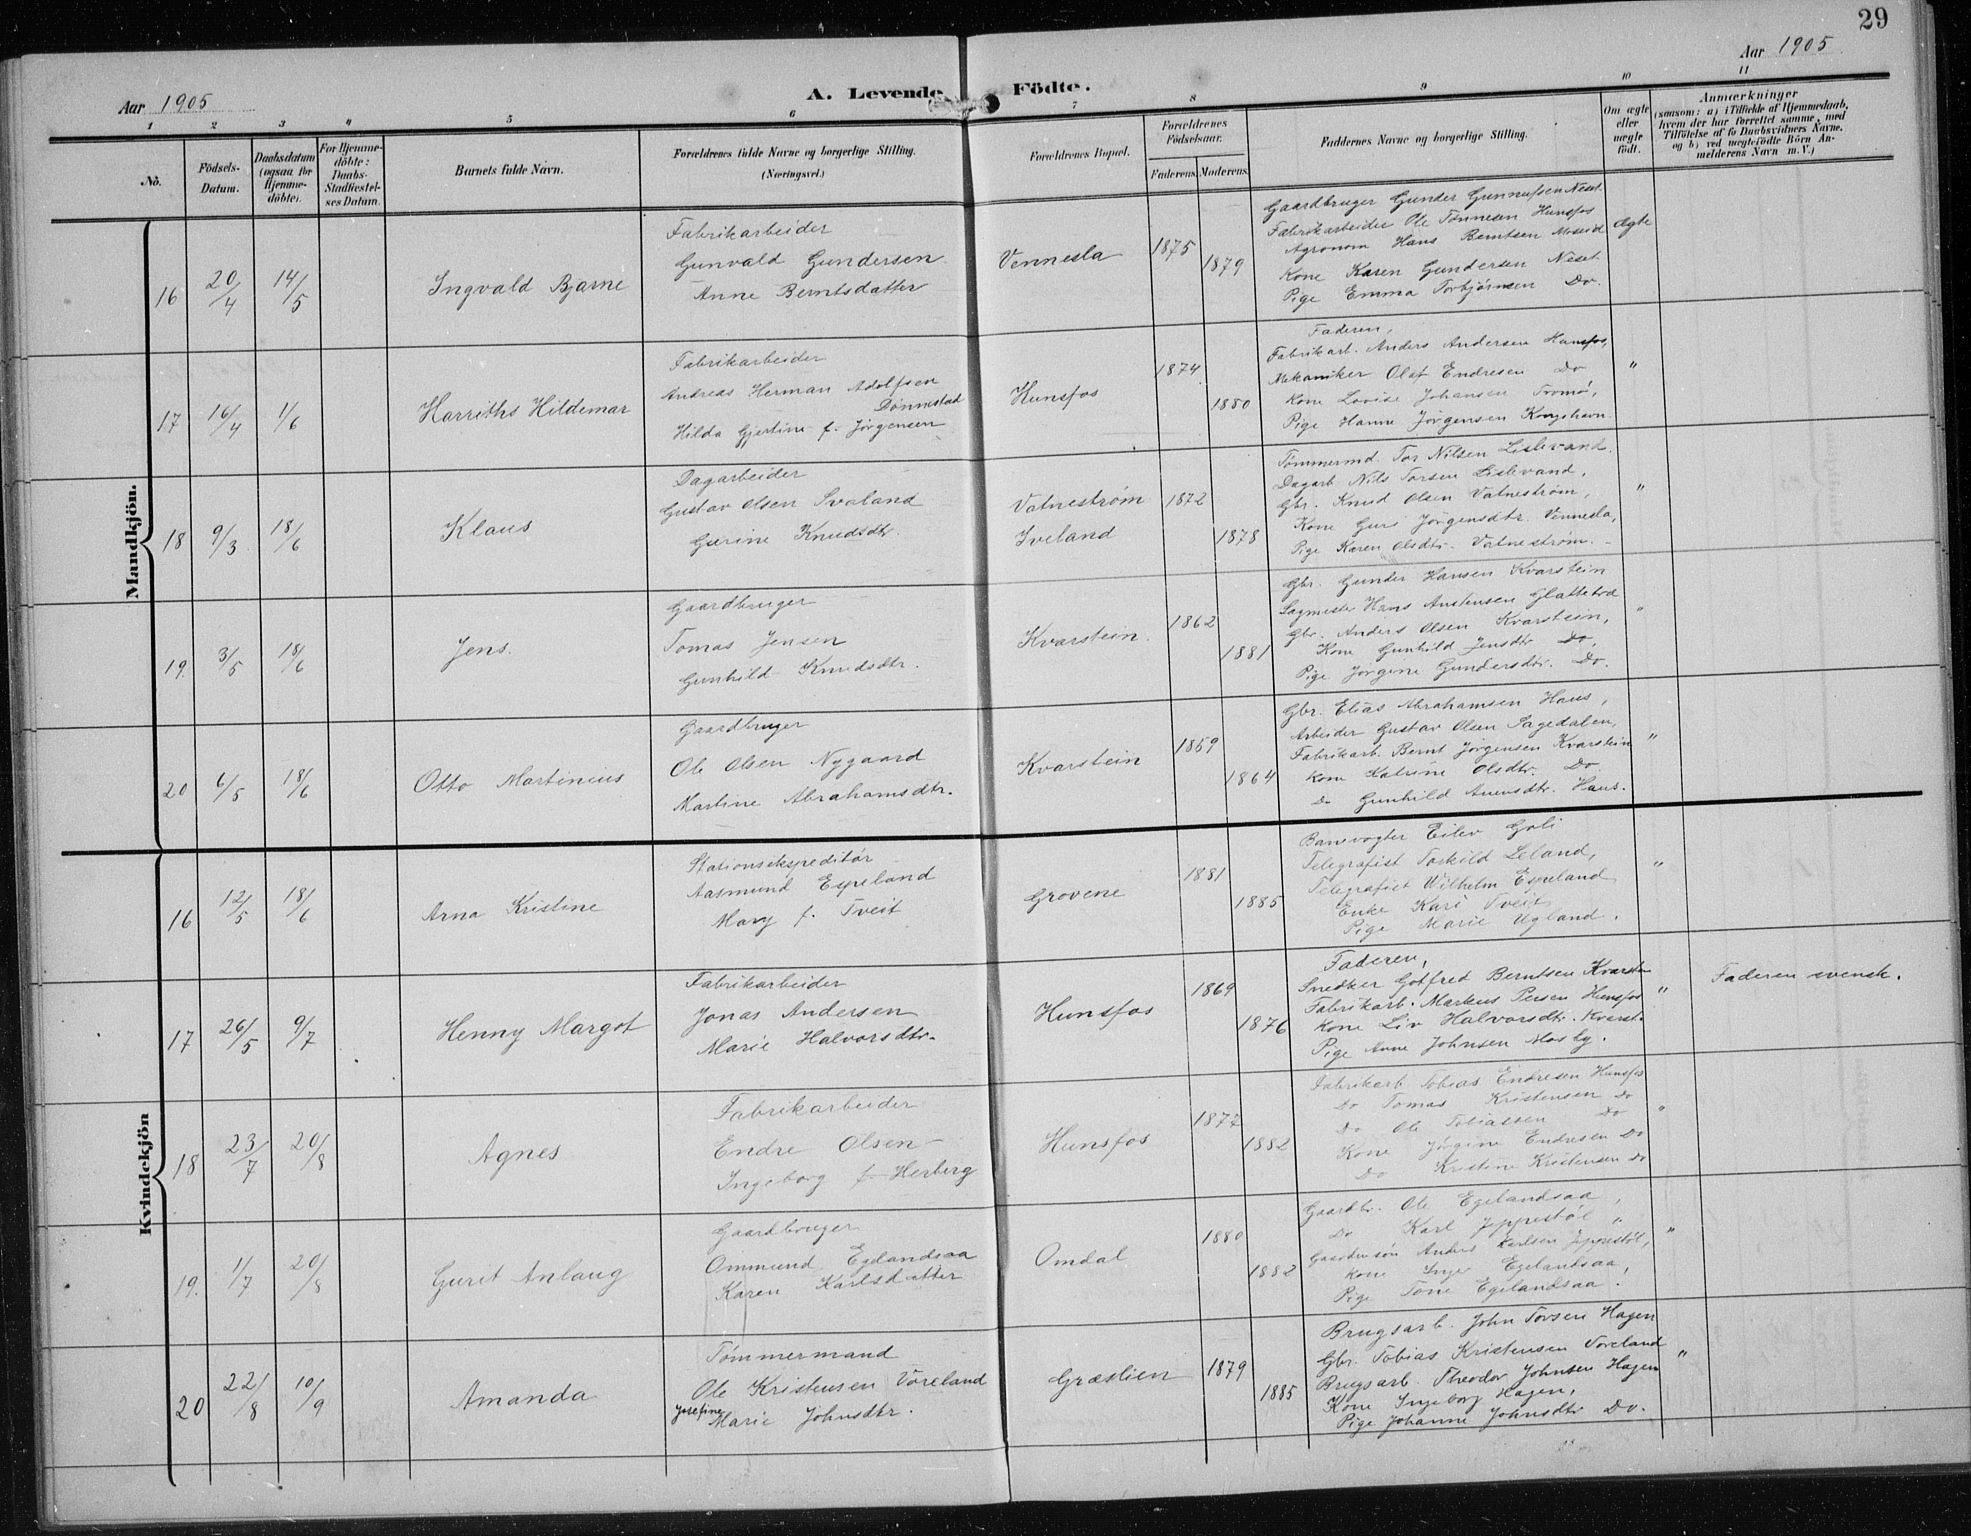 29
Aar 1905
Aar 1905
A. Levende Födte.
1 2 3 4 5 6 7 8 9 10 11
No.
Födsels-Datum.
Daabsdatum (ogsaa for Hjemme-döbte).
For Hjemme-döbte: Daabs-Stadfæstel-ses Datum.
Barnets fulde Navn.
Forældrenes fulde Navne og borgerlige Stilling. (Næringsvei.)
Forældrenes Bopæl.
Forældrenes Födselsaar.
Faderens. Moderens.
Faddernes Navne og borgerlige Stilling.
Om ægte eller uægte födt.
Anmærkninger
(saasom: a) i Tilfælde af Hjemmedaab,
hvem der har forrettet samme, med
Tilföielse af to Daabsvidners Navne.
og b) ved uægtefödte Börn An-
melderens Navn m. V.)
Mandkjön.
16 20/4 14/5 Ingvald Bjarne
Fabrikarbeider
Gunvald Gundersen
Anne Berntsdatter
Vennesla 1875 1879
Gaardbruger Gunder Gunnufsen Neset
Fabrikarbeider Ole Tønnesen Hunsfos
Agronom Hans Berntsen Moseid
Kone Karen Gundersen Neset
Pige Emma Torbjørnsen Do.
Ægte
17 16/4 1/6 Harriths Hildemar
Fabrikarbeider
Andreas Herman Adolfsen
Dønnestad
Hilda Gjertine f. Jørgensen
Hunsfos 1874 1880
Faderen,
Fabrikarb. Anders Andersen Hunsfos,
Mekaniker Olaf Endresen Do
Kone Lovise Johansen Tromø,
Pige Hanne Jørgensen Kongshavn
"
18 9/3 18/6 Klaus
Dagarbeider
Gustav Olsen Svaland
Gurine Knudsdtr.
Vatnestrøm
Iveland
1872 1878
Tømmermd. Tor Nilsen Lislevand.
Dagarb Nils Torsen Lislevand,
Gbr. Knud Olsen Vatnestrøm,
Kone Guri Jørgensdtr. Vennesla,
Pige Karen Olsdtr. Vatnestrøm.
"
19. 3/5 18/6 Jens.
Gaardbruger
Tomas Jensen
Gunhild Knudsdtr.
Kvarstein. 1862 1881
Gbr. Gunder Hansen Kvarstein
Sagmester Hans Anstensen Glattetræ
Gbr. Anders Olsen Kvarstein,
Kone Gunhild Jensdtr. Do,
Pige Jørgine Gundersdtr. Do.
"
20 6/5 18/6 Otto Martinius
Gaardbruger
Ole Olsen Nygaard
Martine Abrahamsdtr.
Kvarstein 1859 1864
Gbr. Elias Abrahamsen Haus,
Arbeider Gustav Olsen Sagedalen,
Fabrikarb. Bernt Jørgensen Kvarstein
Kone Katrine Olsdtr. Do.
Do Gunhild Haus.
"
Kvindekjön
16 12/5 18/6 Arna Kristine
Stationsekspeditør
Aasmund Espeland
Mary f. Tveit
Grovene 1881 1885
Banevogter Eilev Goli
Telegrafist Torkild Leland,
Telegrafist Wilhelm Espeland
Enke Kari Tveit
Pige Marie Ugland.
"
17 26/5 9/7 Henny Margot
Fabrikarbeider
Jonas Andersen
Marie Halvorsdtr.
Hunsfos 1869 1876
Faderen,
Snedker Gotfred Berntsen Kvarsten
Fabrikarb. Markus Persen Hunsfos
Kone Liv Halvorsdtr. Kvarst.
Pige Anne Johnsen Mosby.
"
Faderen svensk.
18 23/7 20/8 Agnes
Fabrikarbeider
Endre Olsen
Ingeborg f. Herberg
Hunsfos 1877 1882
Fabrikarb. Tobias Endresen Hunsfos
Do Tomas Kristensen Do
Do Ole Tobiassen Do
Kone Jørgine Endresen Do
Do Kristine Kristensen Do
"
19. 1/7 20/8 Gurit Anlaug
Gaardbruger
Ommund Egelandsaa
Karen Karlsdatter
Omdal 1880 1882
Gaardbr. Ole Egelandsaa,
Do Karl Jeppestøl "
Gaardmsøn Anders Karlsen Jeppestøl,
Kone Inger Egelandsaa,
Pige Tone Egelandsaa.
"
20 22/8 10/9 Amanda
Tømmermand
Ole Kristensen Voreland
Josefine Marie Johnsdtr.
Græslien 1879 1885
Brugsarb. John Torsen Hagen
Gbr. Tobias Kristensen Voreland
Brugsarb. Theodor Johnsen Hagen
Kone Ingeborg Hagen,
Pige Johanne Johnsdtr Do.
"